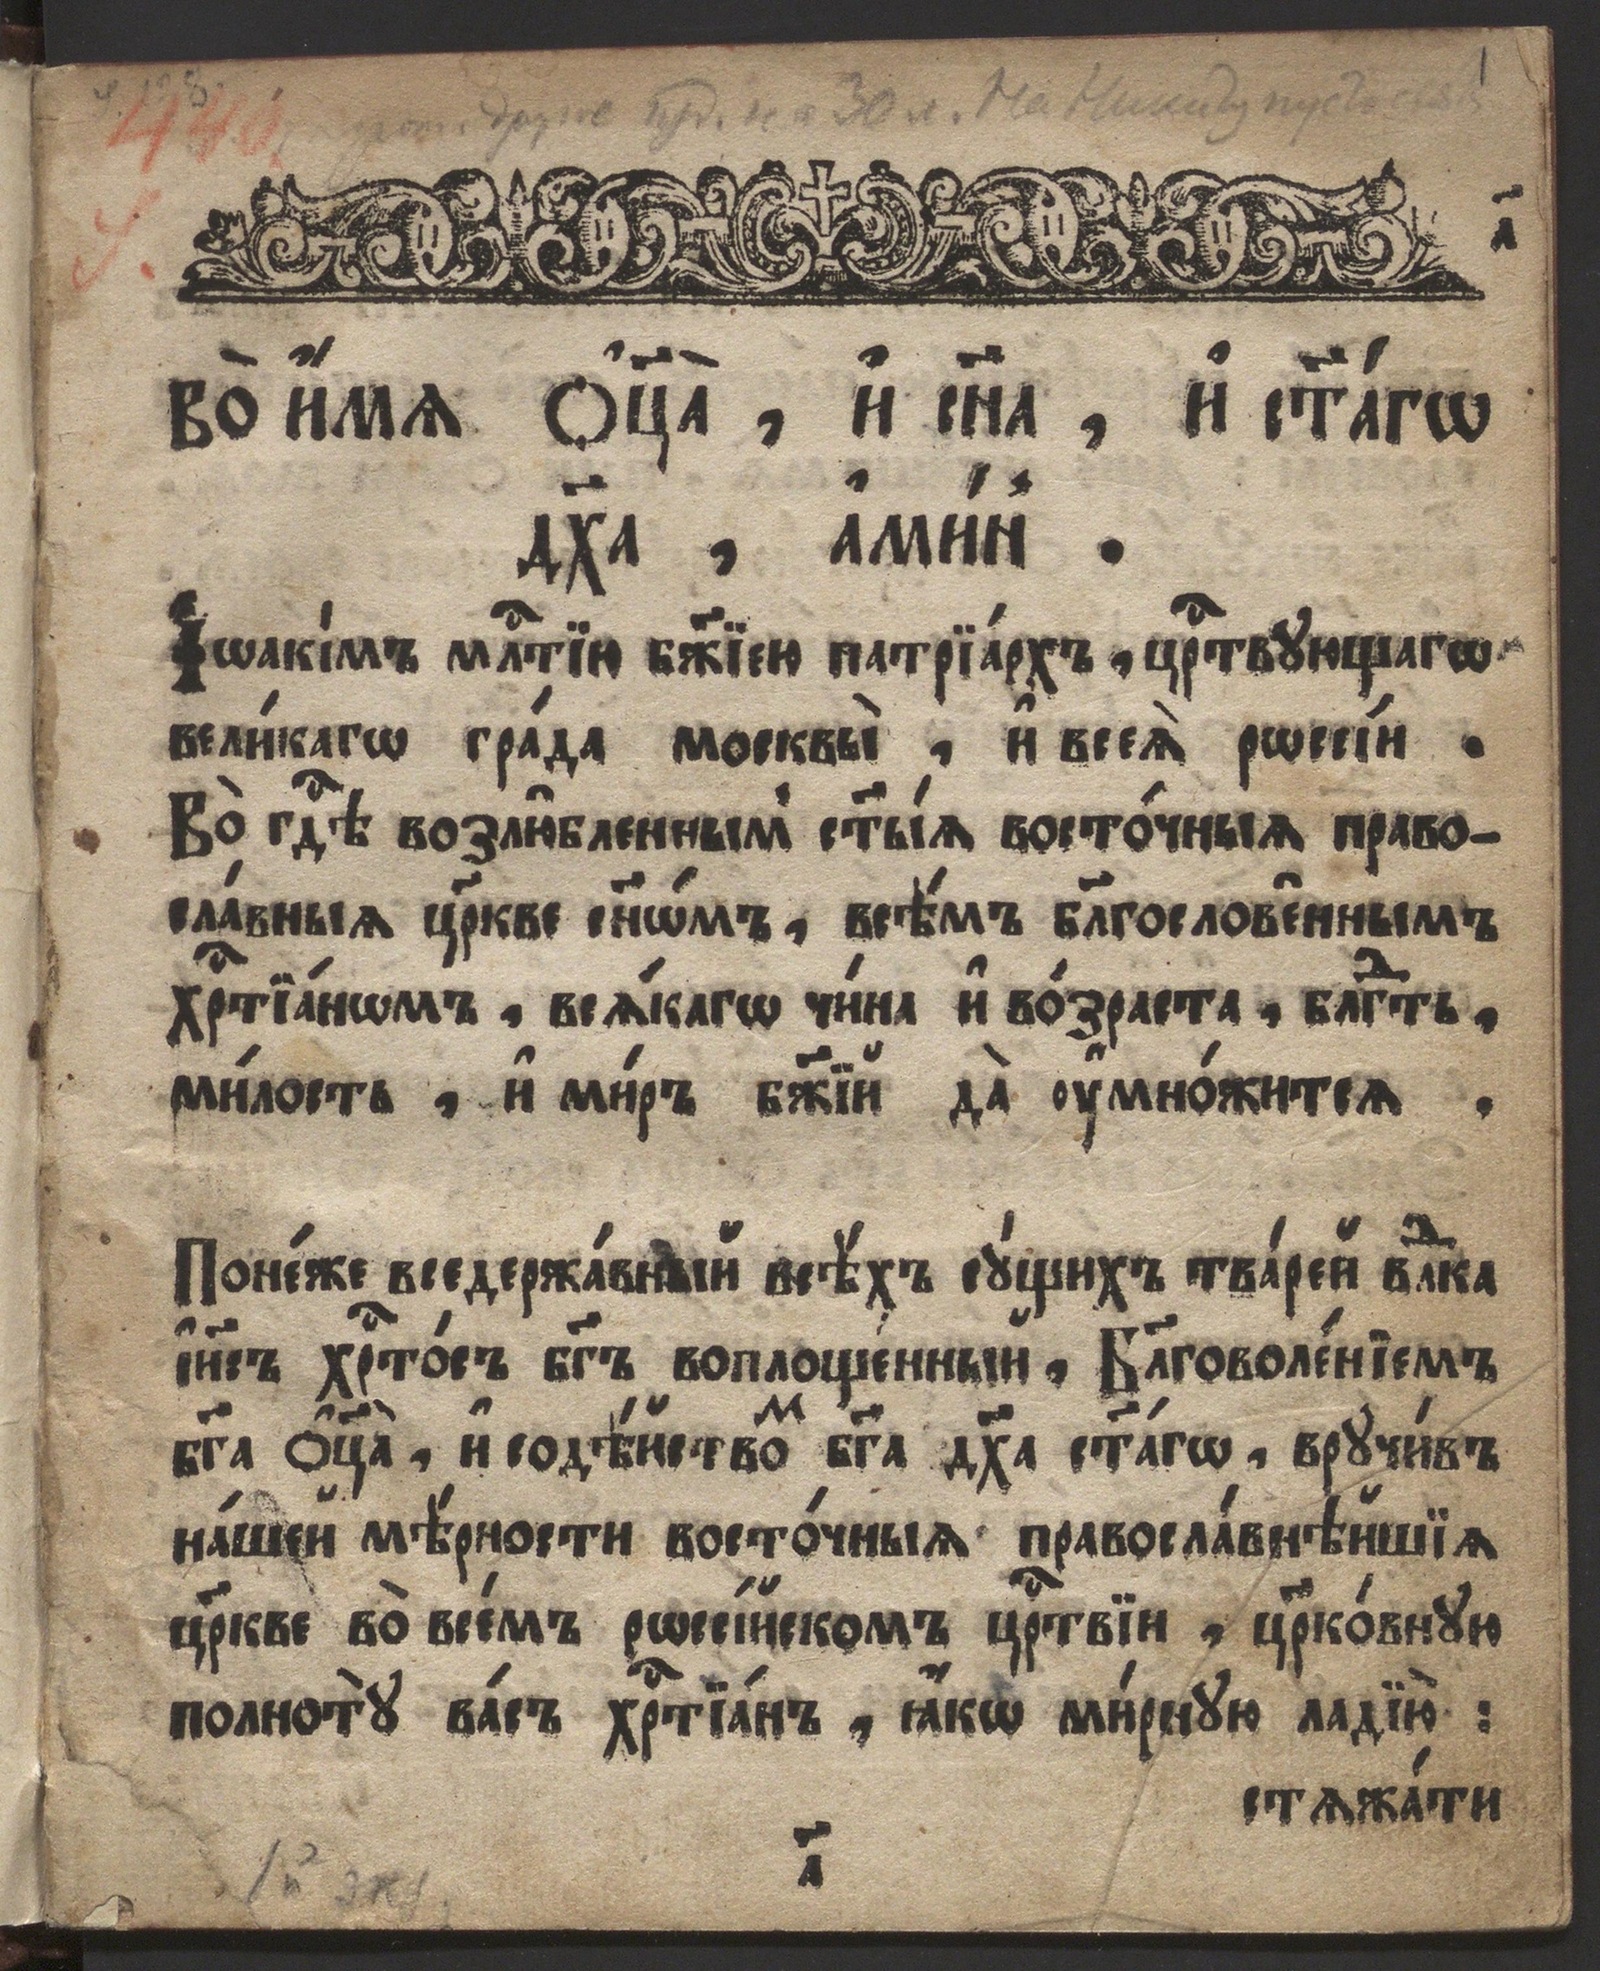 1
440.
30 л. На Никиту
а҃
Во̀ и҆́мѧ ѻ҆ц҃а̀, и҆ сн҃а, и҆ ст҃а́гѡ
дх҃а, а҆ми́н.
І҆ѡакі́мъ млⷭ҇тїю бж҃їею патрїа́рхъ, црⷭ҇твꙋющагѡ
вели́кагѡ гра́да москвы̀, и҆ всеѧ̀ рѡссі́и.
Во̀ гдⷭ҇ѣ возлю́бленным̾ ст҃ы́ѧ восто́чныѧ право-
сла́вныѧ цр҃кве сн҃ѡ́мъ, всѣ́мъ бл҃гослове́ннымъ
хрⷭ҇тїа́нѡмъ, всѧ́кагѡ чи́на и҆ во́зраста, блгⷣть,
ми́лость, и҆ ми́ръ бж҃їй да̀ ᲂу҆мно́житсѧ.
Поне́же вседержа́вный всѣ́хъ сꙋ́щихъ тва́рей влⷣка
і҆и҃съ хрⷭ҇то́съ бг҃ъ воплоще́нный, Бл҃говоле́нїемъ
бг҃а ѻ҆ц҃а̀, и҆ содѣ́йствоⷨ бг҃а дх҃а ст҃а́гѡ, врꙋчи́въ
на́шей мѣ́рности восто́чныѧ правосла́внѣйшїѧ
цр҃кве во̀ все́мъ рѡссі́йскомъ црⷭ҇твїи, цр҃ко́внꙋю
полнотꙋ̀ ва́съ хрⷭ҇тїа́нъ, ꙗ҆́кѡ ми́рнꙋю ладїю̀:
стѧжа́ти
а҃